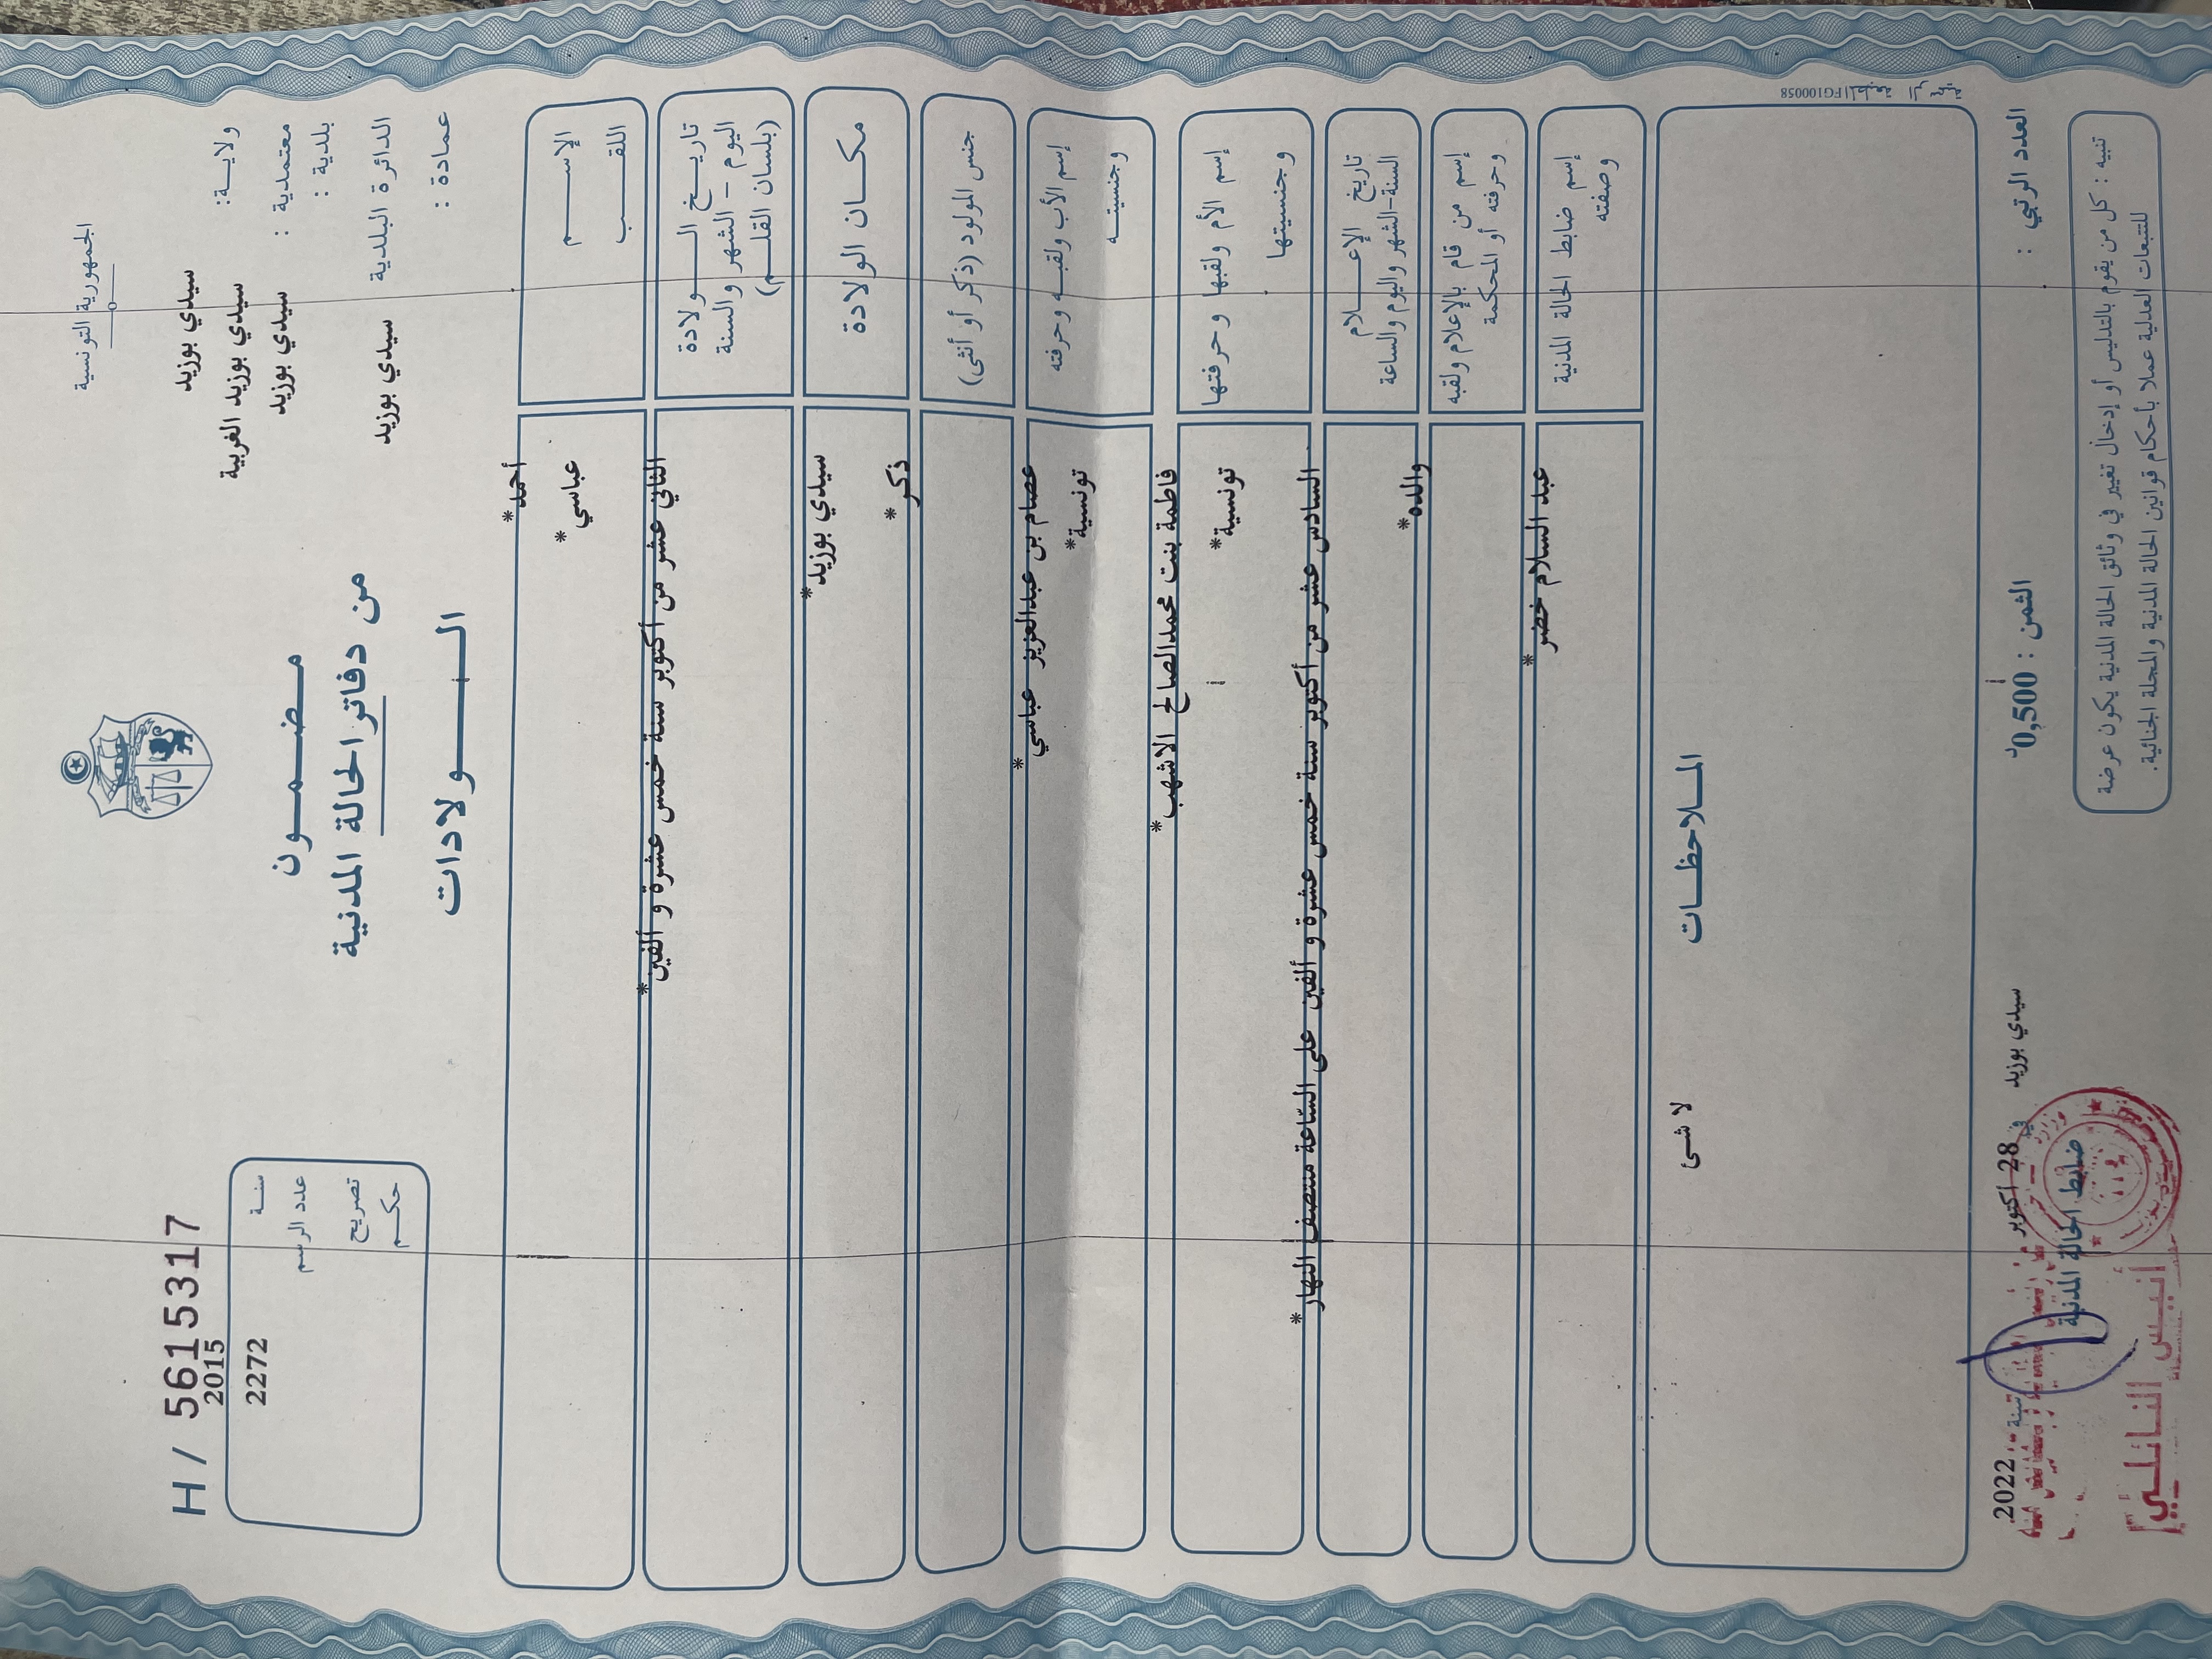 الجمهورية التونسية
ولايـة: سيدي بوزيد
معتمدية : سيدي بوزيد الغربية
بلدية : سيدي بوزيد
الدائرة البلدية سيدي بوزيد
عمادة :
H / 5615317
سنـة 2015
عدد الرسم 2272
تصريح
حكـم
مـضـمـون
من دفاتر الحالة المدنية
الـولادات
الإســم أحمد*
اللقـب عباسي*
تاريـخ الـولادة
اليوم - الشهر والسنة
(بلسان القلـم)
الثاني عشر من أكتوبر سنة خمس عشرة و ألفين*
مكـان الولادة سيدي بوزيد*
جنس المولود (ذكر أو أنثى) ذكر*
إسم الأب ولقبـه وحرفته عصام بن عبدالعزيز عباسي*
وجنسيتـه تونسية*
إسم الأم ولقبها وحرفتها فاطمة بنت محمدالصالح الاشهب*
وجنسيتهـا تونسية*
تاريخ الإعـلام
السنة-الشهر واليوم والساعة
السادس عشر من أكتوبر سنة خمس عشرة و ألفين على الساعة منتصف النهار*
إسم من قام بالإعلام ولقبه
وحرفته أو المحكمة
والده*
إسم ضابط الحالة المدنية
وصفته
عبد السلام خضر*
الملاحظـات
لا شى
FG100058
العدد الرتبي :
الثمن : 0,500د
سيدي بوزيد في 28 أكتوبر سنة 2022
ضابط الحالة المدنية
تنبيه : كل من يقوم بالتدليس أو إدخال تغيير في وثائق الحالة المدنية يكون عرضة
للتتبعات العدلية عملا بأحكام قوانين الحالة المدنية والمجلة الجنائية.